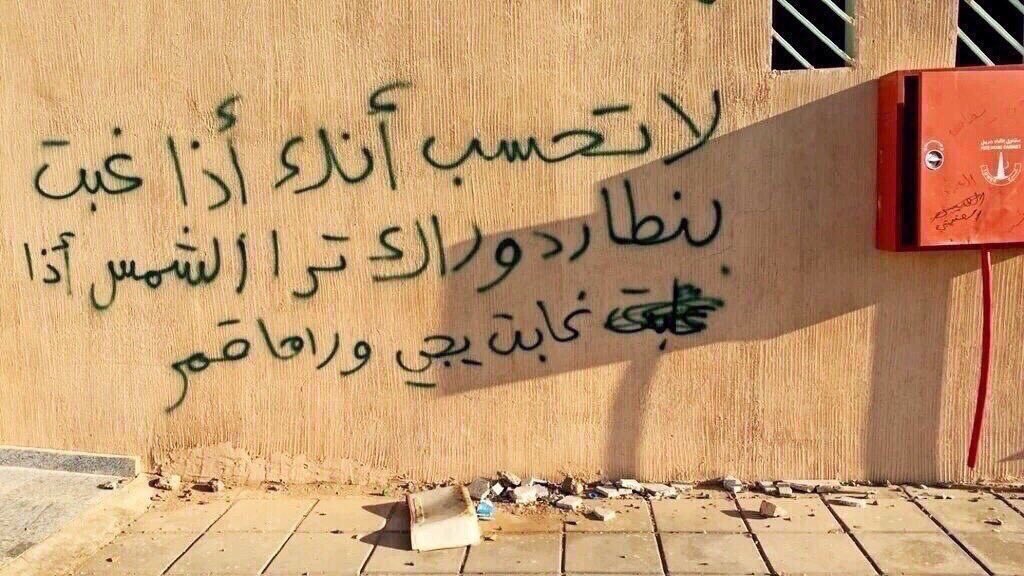 لا تحسب أنك أذا غبت
بنطارد وراك ترا الشمس أذا
غابت يجي وراها قمر